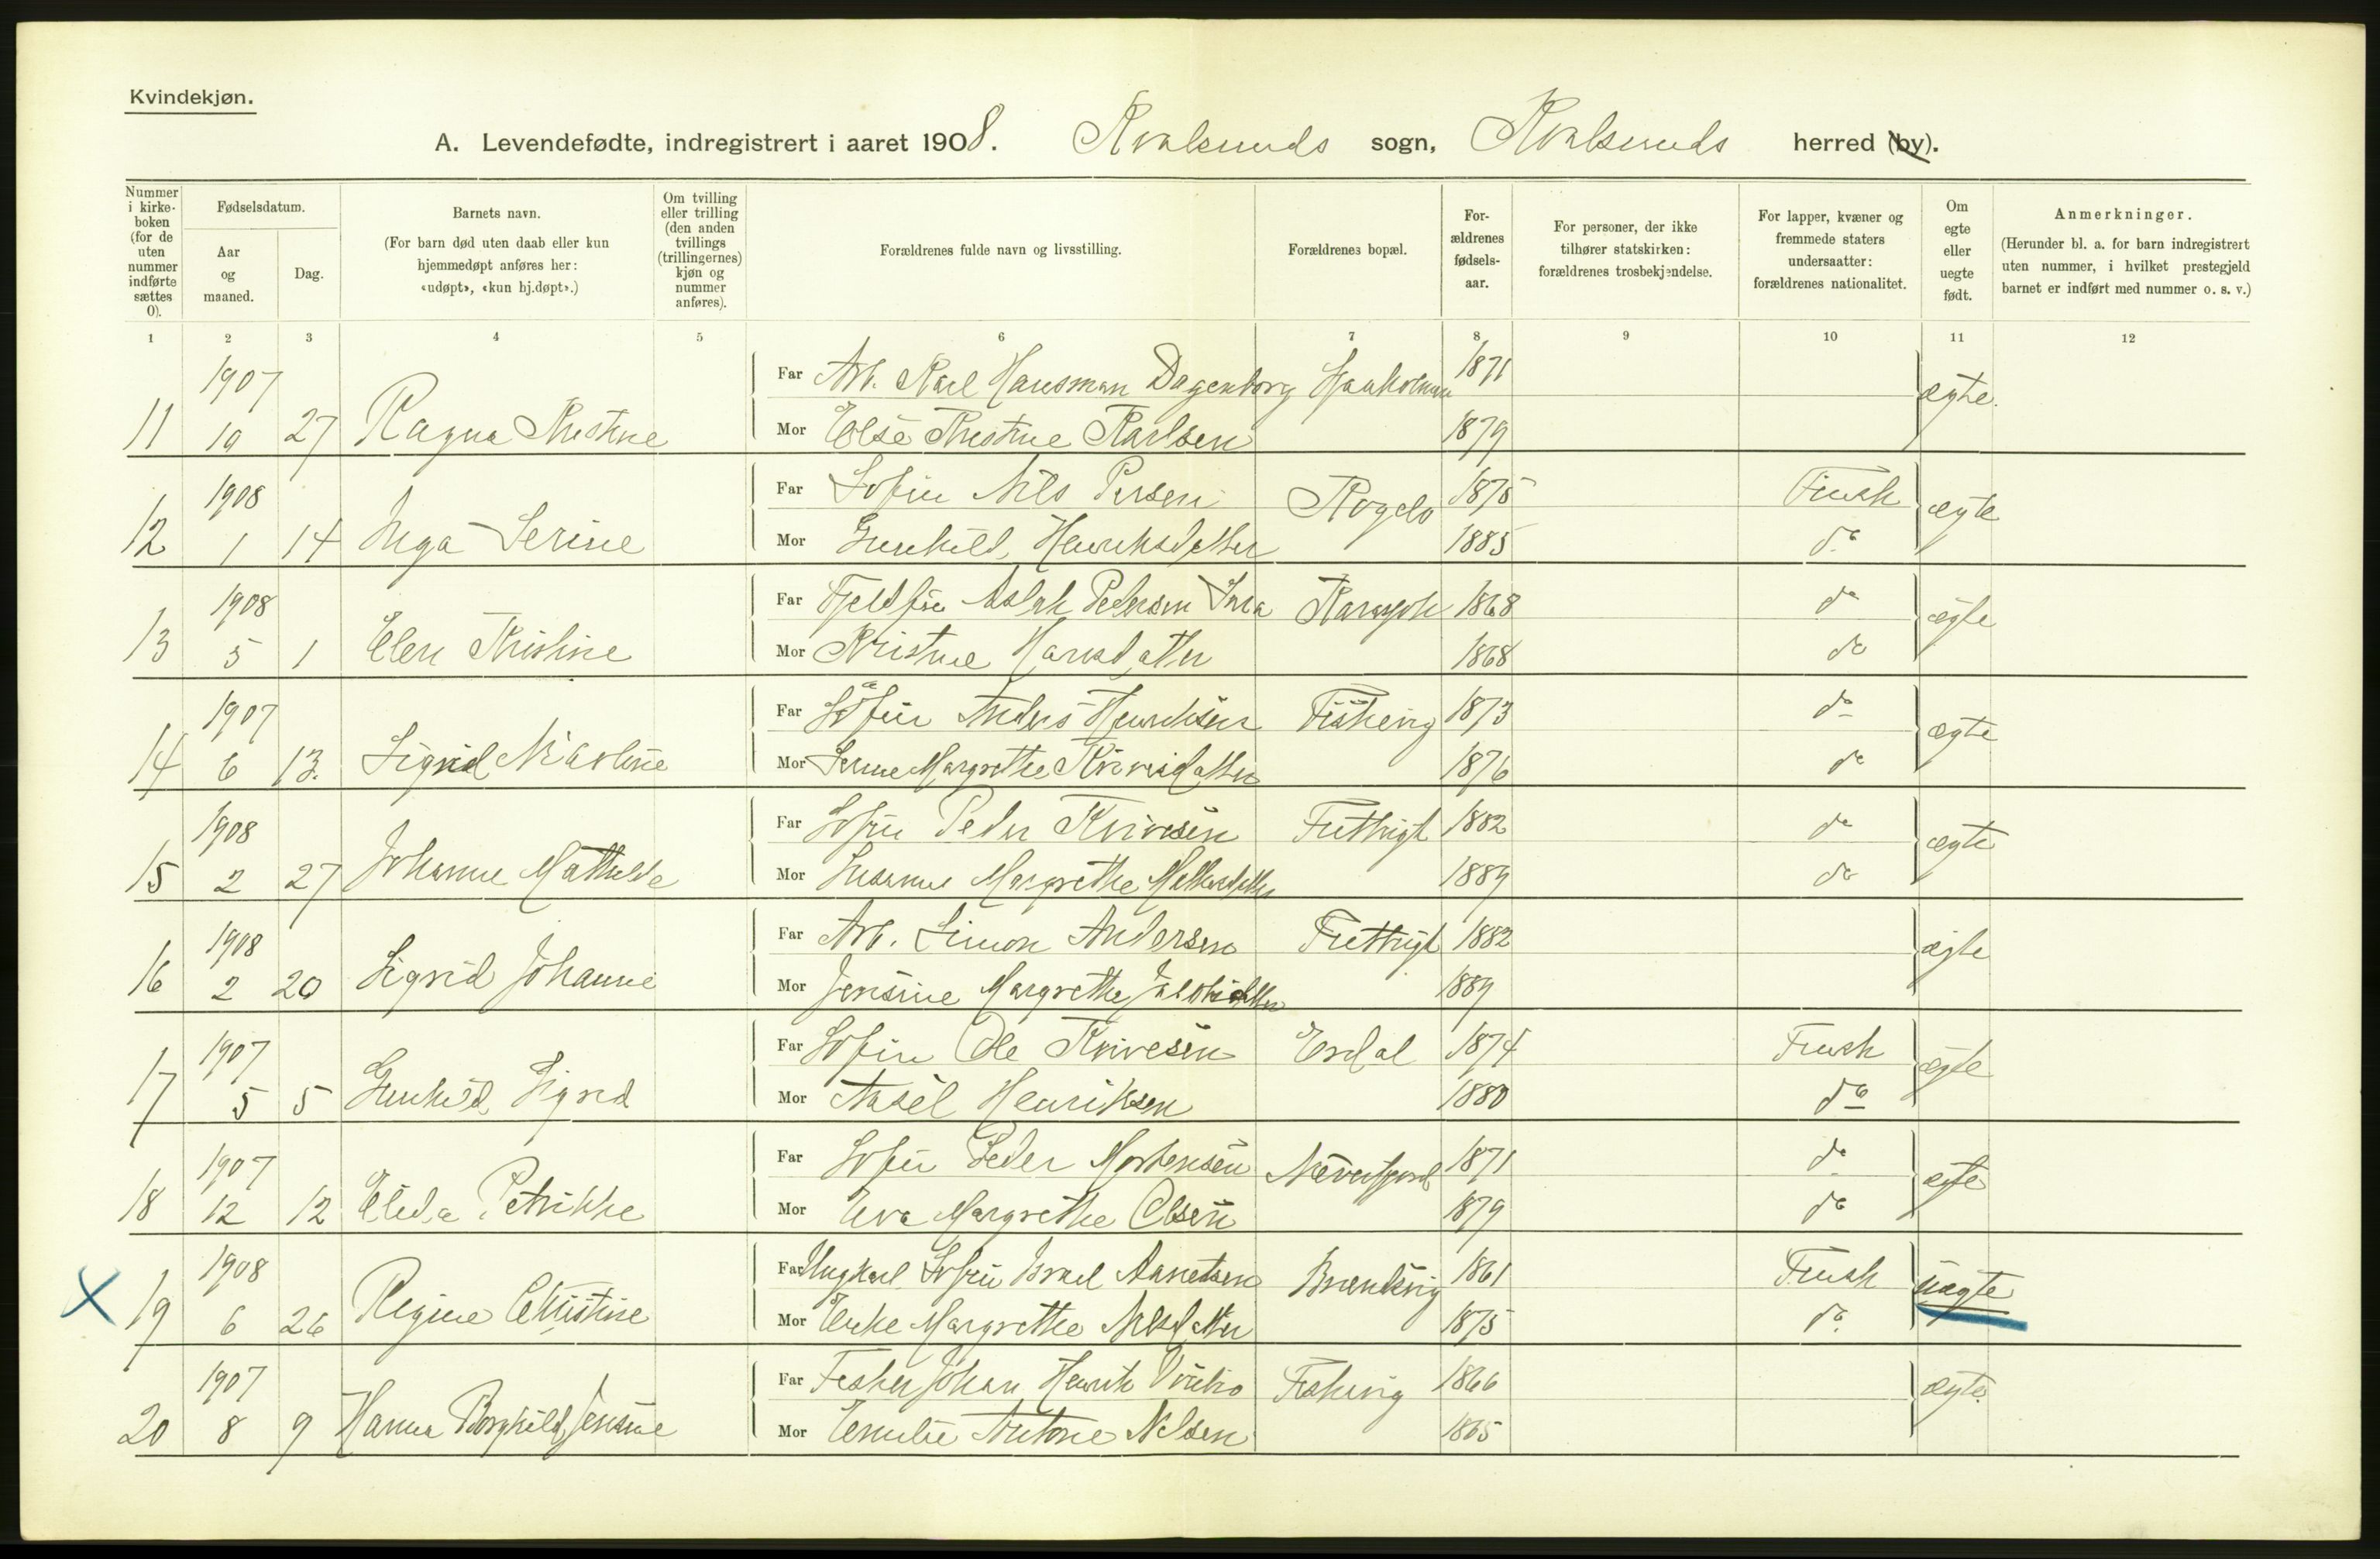 Kvindekjøn.
A. Levendefødte, indregistrert i aaret 1908. Kvalsunds sogn, Kvalsunds herred (by).
Nummer i kirkeboken (for de uten nummer indførte sættes 0).
Fødselsdatum.
Aar og maaned.
Dag.
Barnets navn.
(For barn død uten daab eller kun hjemmedøpt anføres her: «udøpt», «kun hj.døpt».)
Om tvilling eller trilling (den anden tvillings (trillingernes) kjøn og nummer anføres).
Forældrenes fulde navn og livsstilling.
Forældrenes bopæl.
Forældrenes fødselsaar.
For personer, der ikke tilhører statskirken: forældrenes trosbekjendelse.
For lapper, kvæner og fremmede staters undersaatter: forældrenes nationalitet.
Om egte eller uegte født.
Anmerkninger.
(Herunder bl. a. for barn indregistrert uten nummer, i hvilket prestegjeld barnet er indført med nummer o. s. v.)
1 2 3 4 5 6 7 8 9 10 11 12
1907 Far Arb. Karl Hansman Dagenborg 1871 ægte.
11 10 27 Ragna Kristine Mor Else Kristine Karlsen 1879
1908 Far Søfin Nils Persen 1875 Finsk ægte
12 1 14 Inga Serine Mor Gunhild Henriksdatter 1885 do
1908 Far Fjeldfin Aslak Pedersen Sara Karasjok 1868 do ægte
13 5 1 Elen Kristine Mor Kristine Hansdatter 1868 do
1907 Far Søfin Anders Henriksen Fiskevig 1873 do ægte
14 6 13. Sigrid Nikoline Mor Serine Margrethe 1876 do
1908 Far Søfin Peder Kvivesen 1882 do ægte
15 2 27 Johanne Mathilde Mor Susanne Margrethe 1889 do
1908 Far Arb. Simon Andersen 1882 ægte
16 2 20 Sigrid Johanne Mor Jensine Margrethe Jakobsdatter 1889
1907 Far Søfin Ole Kvivesen Erdal 1874 Finsk ægte
17 5 5 Gunhild Sigrid Mor Aasel Henriksen 1880 do
1907 Far Søfin Peder Mortensen Neverfjord 1871 do ægte
18 12 12 Elida Petrikke Mor Eva Margrethe Olsen 1879 do
1908 Far Ungkarl Søfin Israel 1861 Finsk uægte
X 19 6 26 Regine Christine Mor Margrethe Nilsdatter 1875 do
1907 Far Fisker Johan Henrik Fiskevig 1866 ægte.
20 8 9 Hanna Borghild Jensine Mor Emilie Antone Nilsen 1865